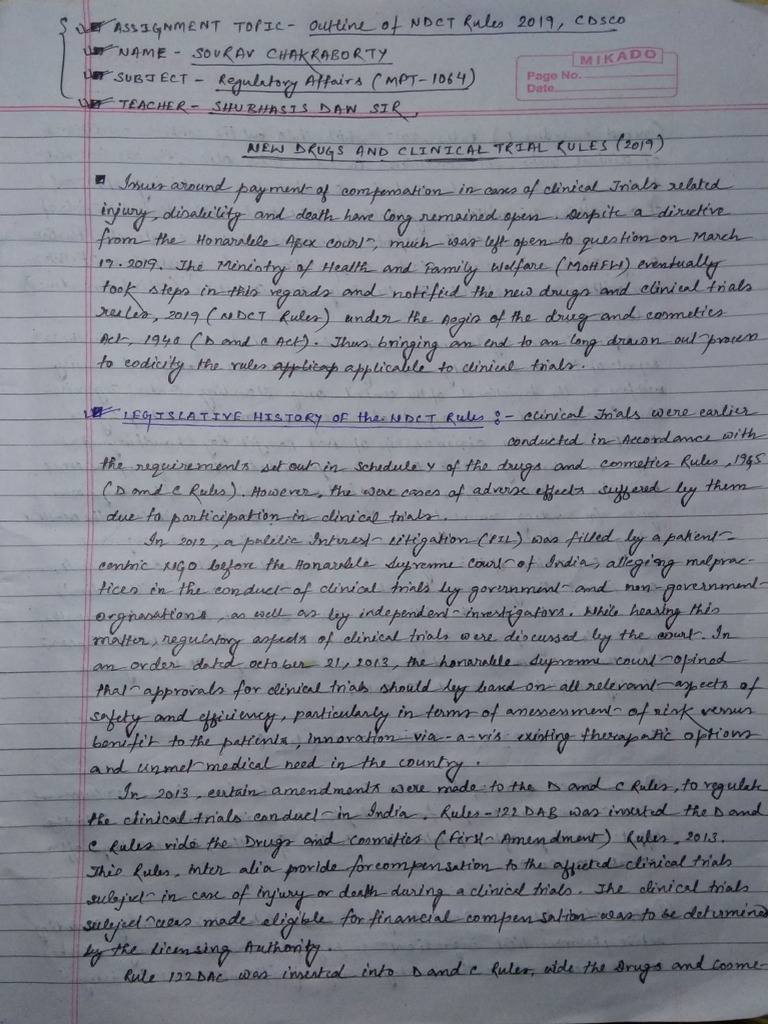 ASSIGNMENT TOPIC - Outline of NDCT Rules 2019, CDSCO
NAME - SOURAV CHAKRABORTY
SUBJECT - Regulatory Affairs (MPT-1064)
TEACHER - SHUBHASIS DAW SIR,
MIKADO
Page No.
Date
NEW DRUGS AND CLINICAL TRIAL RULES (2019)
Issues around payment of compensation in cases of clinical Trials related
injury, disability and death have long remained open. Despite a directive
from the Honarable Apex court, much was left open to question on March
19.2019. The Ministry of Health and Family Welfare (MOHFW) eventually
took steps in this regards and notified the new drugs and clinical trials
rules, 2019 (NDCT Rules) under the Aegis of the drug and cosmetics
Act, 1940 (D and C Act). Thus bringing an end to an long drawn out process
to codicity the rules applicap applicable to clinical trials.
LEGISLATIVE HISTORY OF the NDCT Rules :- clinical Trials were earlier
conducted in Accordance with
the requirements set out in Schedule Y of the drugs and cosmetics Rules, 1945
(D and C Rules). However, the were cases of adverse effects suffered by them
due to participation in clinical trials.
In 2012, a public Interest litigation (PIL) was filled by a patient-
centric NGO before the Honarable Supreme court of India, alleging malprac-
tices in the conduct of clinical trials by government and non-government
orgnasations, as well as by independent investigators. While hearing this
matter, regulatory aspects of clinical trials were discussed by the court. In
an order dated october 21, 2013, the honarable supreme court opined
that approvals for clinical trials should by based on all relevant aspects of
safety and efficiency, particularly in terms of anessessment of risk versus
benifit to the patients, innovation via-a-vis existing therapatic options
and unmet medical need in the country.
In 2013, certain amendments were made to the D and C Rules, to regulate
the clinical trials conduct in India. Rules-122 DAB was inserted the D and
C Rules vide the Drugs and cosmetics (First Amendment) Rules, 2013.
This Rules, inter alia provide for compensation to the affected clinical trials
subject in case of injury or death during a clinical trials. The clinical trials
subject was made eligible for financial compensation was to be determined
by the licensing Authority.
Rule 122 DAC was inserted into D and C Rules, vide the Drugs and cosme-